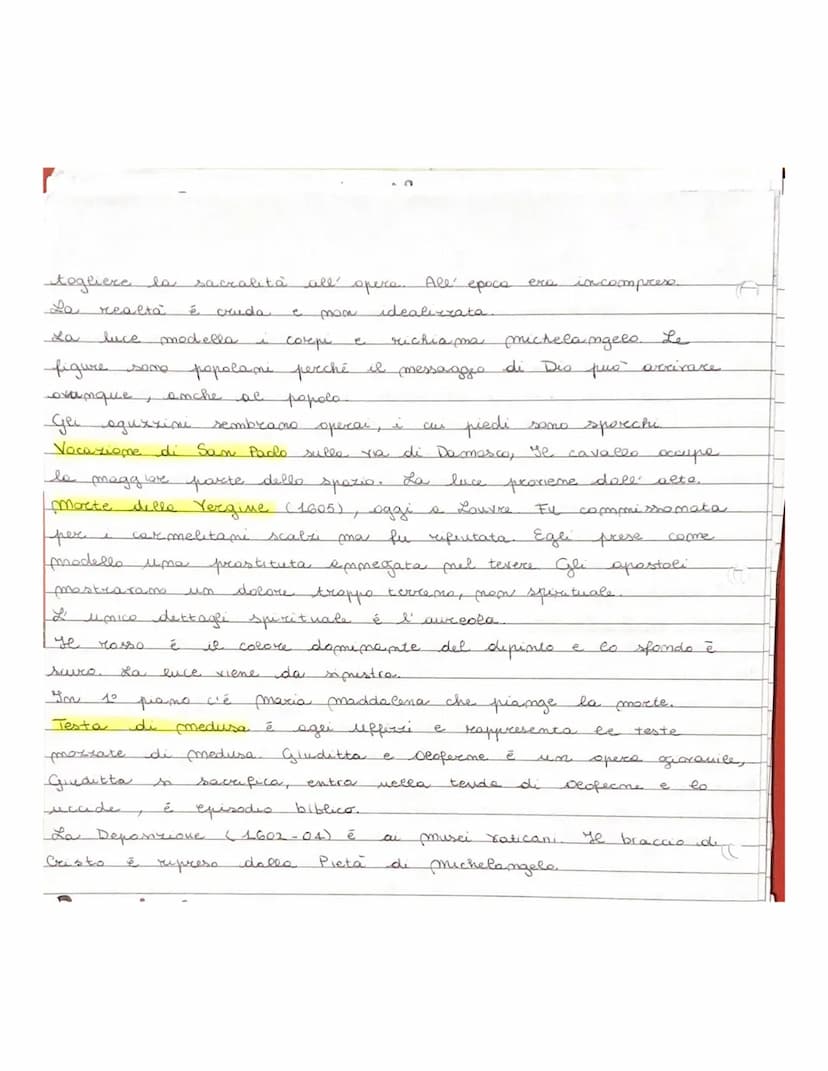 togliere la sacralità all' opera. All' epoca era incompreso.
La realtà è cruda e non idealizzata.
La luce modella i corpi e richiama michelangelo. Le
figure sono popolani perchè il messaggio di Dio può arrivare
ovunque, anche al popolo.
Gli aguzzini sembrano operai, i cui piedi sono sporchi
Vocazione di San Paolo sulla via di Damasco, Il cavallo occupa
la maggior parte dello spazio. La luce proviene dall' alto.
Morte della Vergine (1605), oggi a Louvre. Fu commissionata
per i carmelitani scalzi ma fu rifiutata. Egli prese come
modello una prostituta annegata nel tevere Gli apostoli
mostravano un dolore troppo terreno, non spirituale.
L' unico dettagli spirituale è l' aureola.
Il rosso è il colore dominante del dipinto e lo sfondo è
scuro. La luce viene da sinistra.
In 1° piano c'è maria maddalena che piange la morte.
Testa di medusa è agli uffizi e rappresenta le teste
mozzate di medusa. Giuditta e Oloferne è un opera giovanile,
Giuditta si sacrifica, entra nella tenda di Oloferne e lo
uccide, è episodio biblico.
La Deposizione (1602-04) è ai musei vaticani. Il braccio di
Cristo è ripreso dalla Pietà di michelangelo.